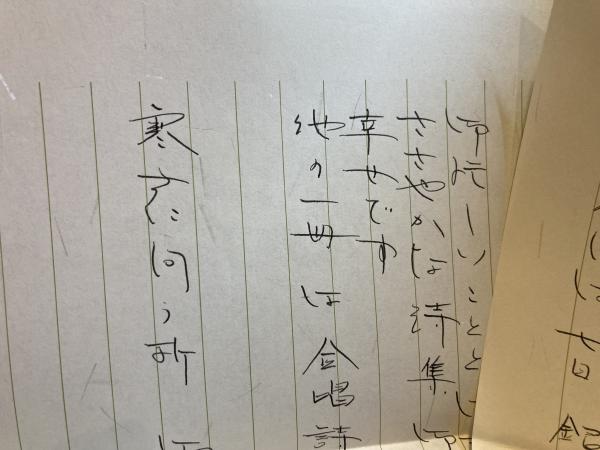 御忙しいことと
ささやかな詩集 御
幸せです
他の一冊は合唱詩
寒さに向う折 御